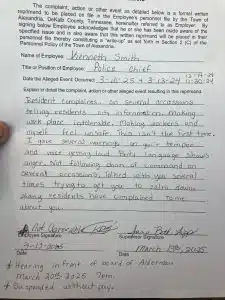 The complaint, action or other event as detailed below is a formal written
reprimand to be placed on file in the Employee's personnel file by the Town of
Alexandria, DeKalb County, Tennessee, (hereinafter referred to as Employer). By
signing below Employee acknowledges that he or she has been made aware of the
specified issue and is also aware that this written reprimand will be placed in their
personnel file thereby constituting a "write-up" as set forth in Section 2 (C) of the
Personnel Policy of the Town of Alexandria.
Name of Employee: Kenneth Smith
Title or Position of Employee: Police Chief
Date the Alleged Event Occurred: 3-10-25 & 3-13-24
Explain in detail the complaint, action or other alleged event resulting in this reprimand:
Resident complaines on several occassions
telling residents information. Making
work place intolerable. Making workers and
myself feel unsafe. This isn't the first time.
I gave several warnings on your temper
and voice getting loud. Body language shows
anger. Not following chain of command on
several occassions, talked with you several
times trying to get you to calm down.
Many residents have complained to me
about you.
Employee Signature
Supervisor Signature
3-12-2025
March 13th, 2025
Date
Date
* Hearing in front of board of Alderman
March 20th 2025 7pm.
* Suspended without pay.